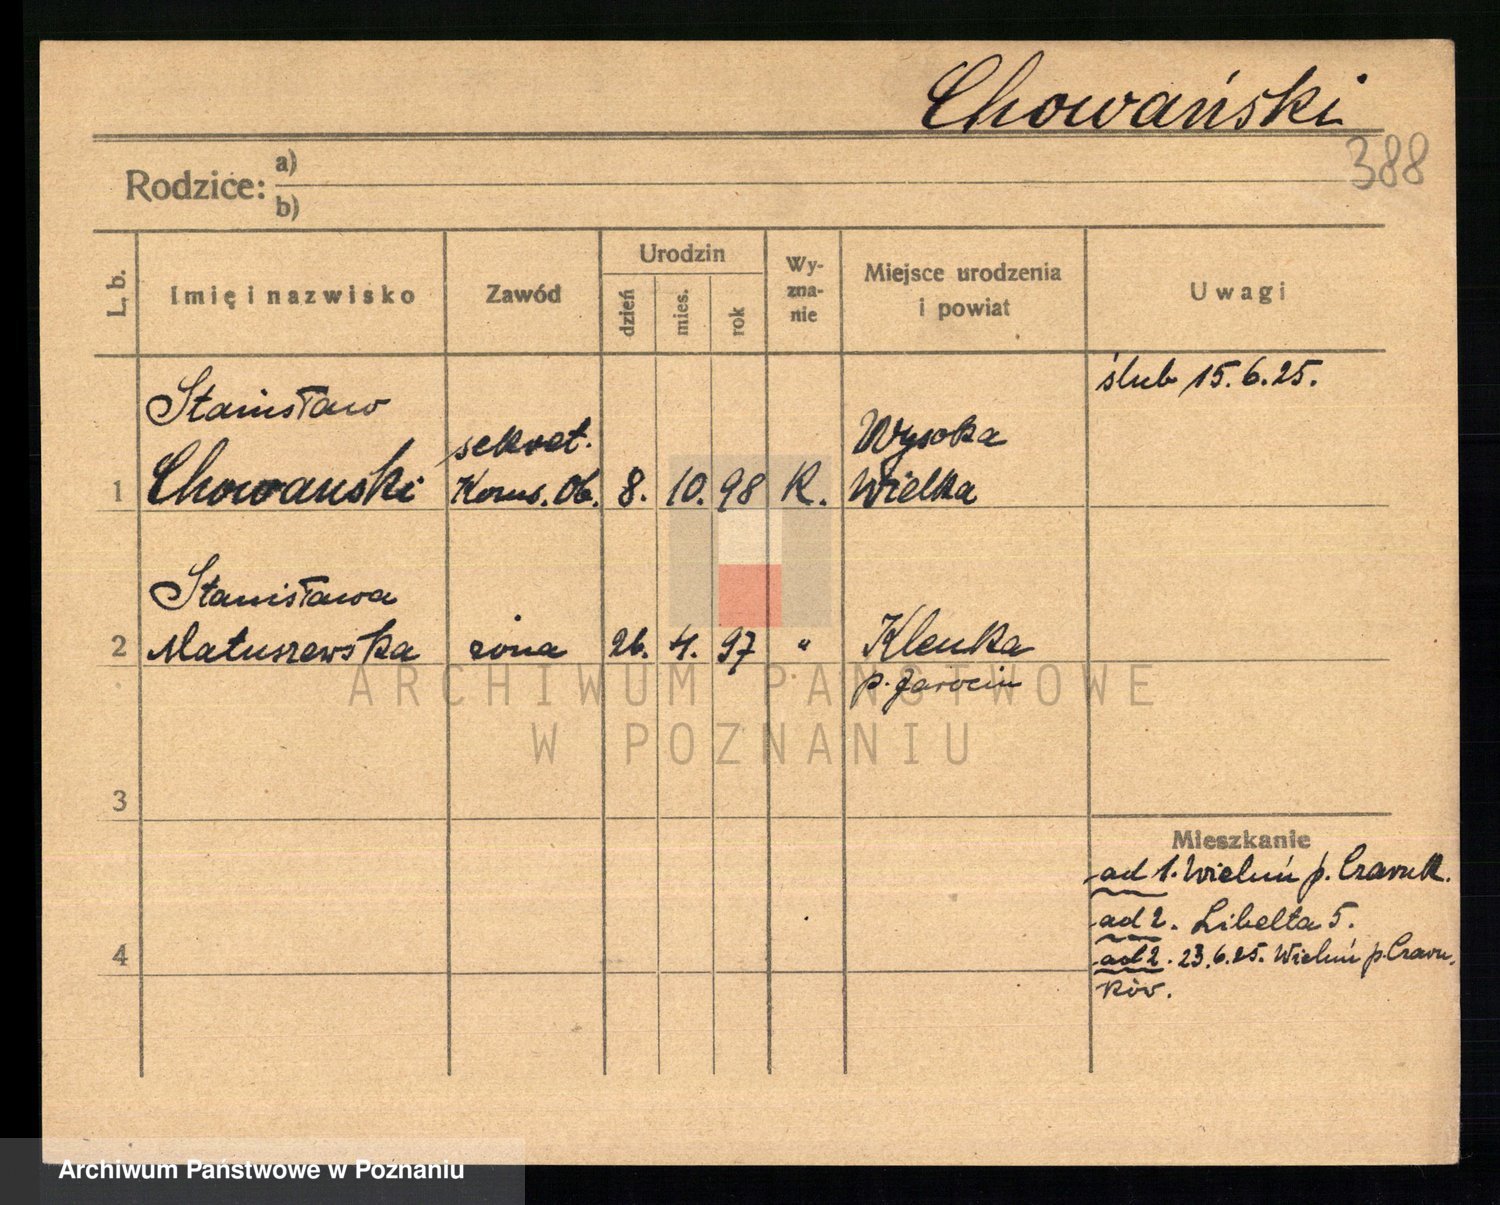 Chowański
388
Rodzice: a)
b)
L. b.
Imię i nazwisko
Zawód
Urodzin
dzień
mies.
rok
Wy-
zna-
nie
Miejsce urodzenia
i powiat
Uwagi
ślub 15.6.25.
Stanisław
sekret.
Wysoka
1 Chowanski Kom. Ob. 8. 10. 98 K. Wielka
Stanisława
2 Matuszewska zona 26. 4. 97 " Klenka
p. Jarocin
ARCHIWUM PAŃSTWOWE
W POZNANIU
3
Mieszkanie
ad 1. Wieluń p. Czarnk.
ad 2. Libelta 5.
4
ad 2. 23.6.25. Wieluń p. Czarn.
ków.
Archiwum Państwowe w Poznaniu